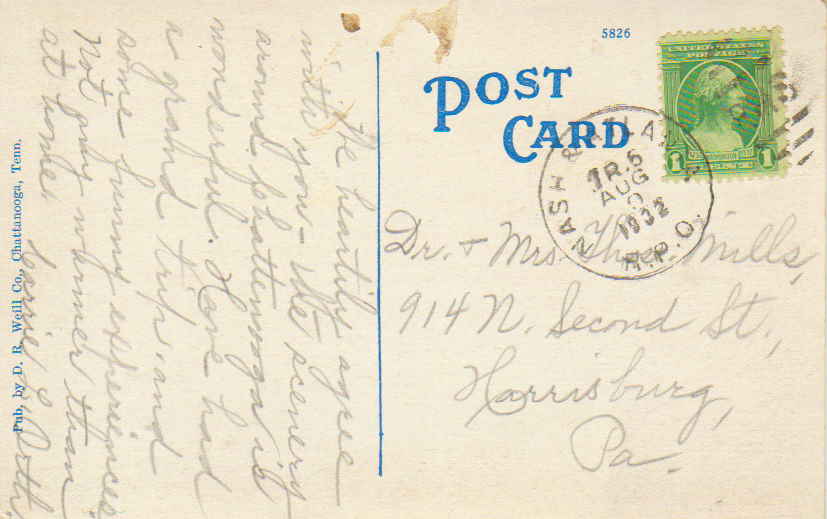 5826
POST
CARD
UNITED STATES
POSTAGE
1
1
NASH & ATLANTA
TR. 6
AUG
9
1932
R.P.O.
We heartily agree
with you - the scenery
around Chattanooga is
wonderful. Have had
a grand trip and
some funny experiences.
Not any warmer than
at home.
Carrie &
Dr. & Mrs. Mills,
914 N. Second St.,
Harrisburg,
Pa.
Pub. by D. R. Weill Co., Chattanooga, Tenn.